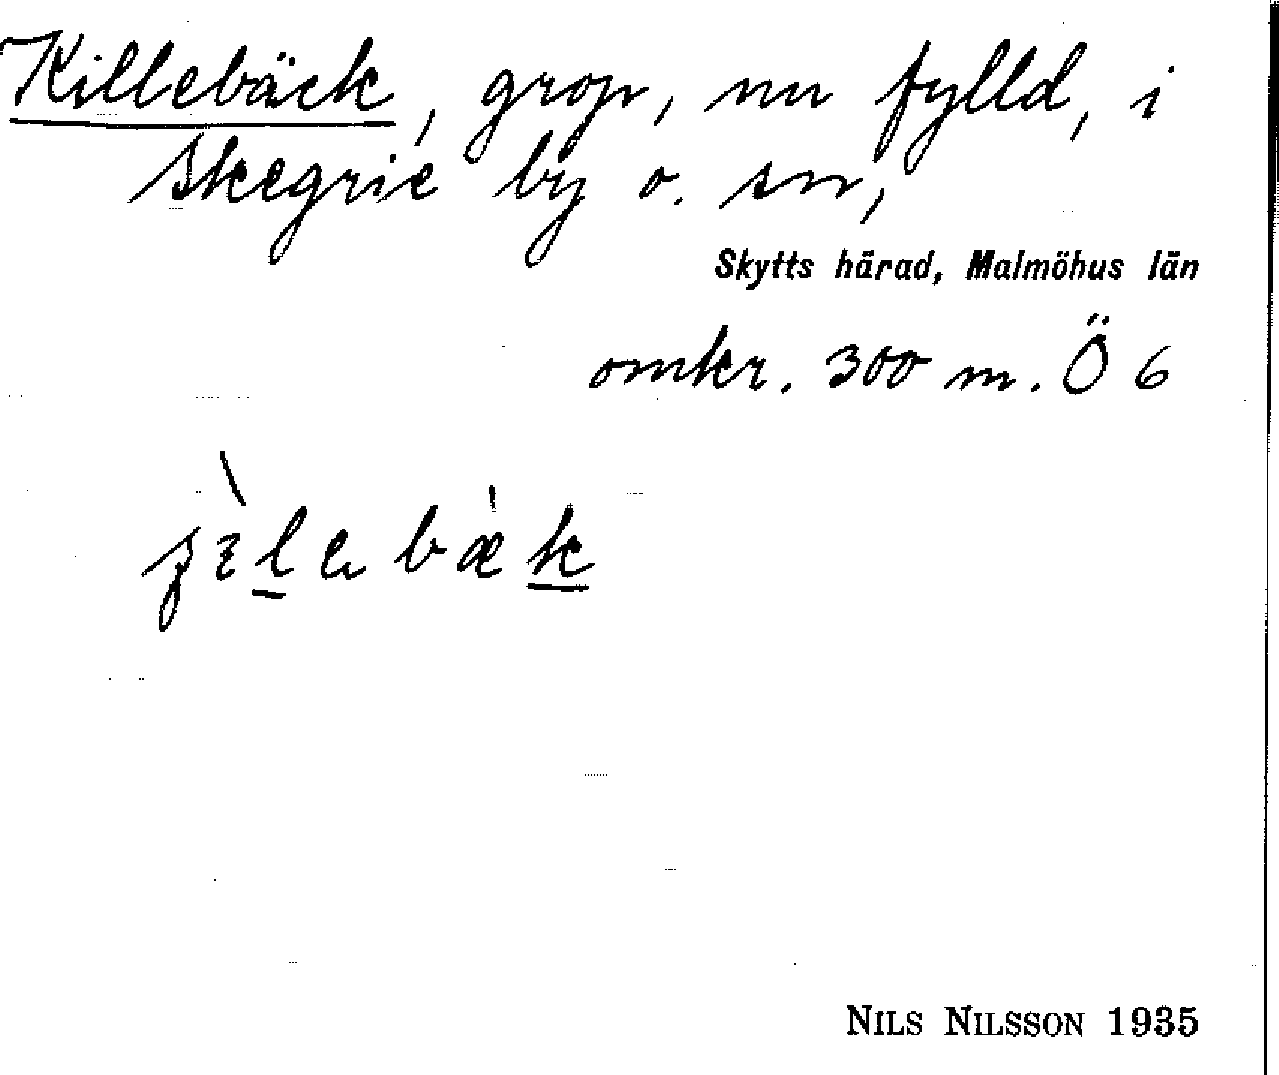 Killebäck, grop, nu fylld, i
Skegrie by o. sn,
Skytts härad, Malmöhus län
omkr. 300 m. Ö 6
NILS NILSSON 1935